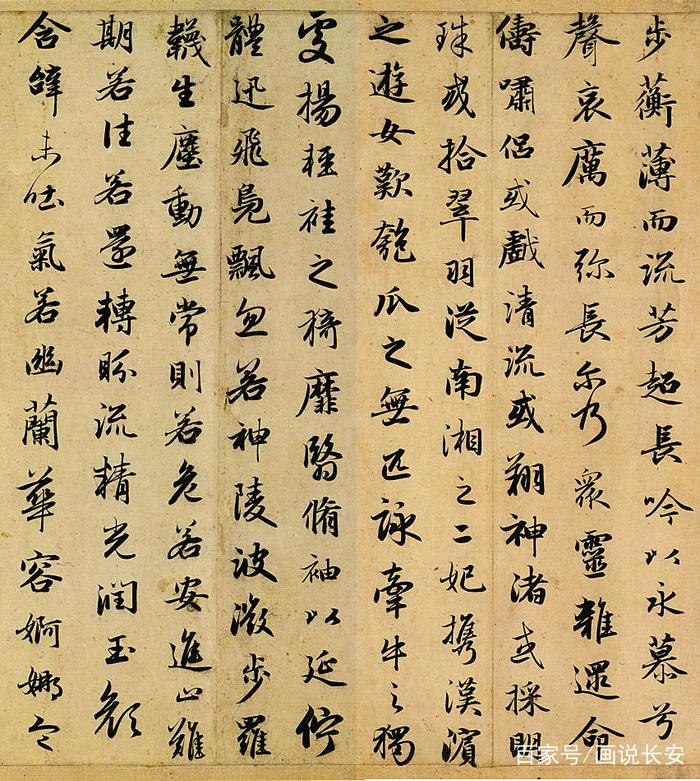 步蘅薄而流芳超長吟以永慕兮
聲哀厲而弥長尔乃衆靈雜遝命
儔嘯侶或戲清流或翔神渚或採明
珠或拾翠羽從南湘之二妃攜漢濱
之遊女歎匏瓜之無匹詠牽牛之獨
處揚輕袿之猗靡翳脩袖以延佇
體迅飛鳧飄忽若神陵波微步羅
韈生塵動無常則若危若安進止難
期若往若還轉眄流精光潤玉顏
含辭未吐氣若幽蘭華容婀娜令
百家号/画说长安